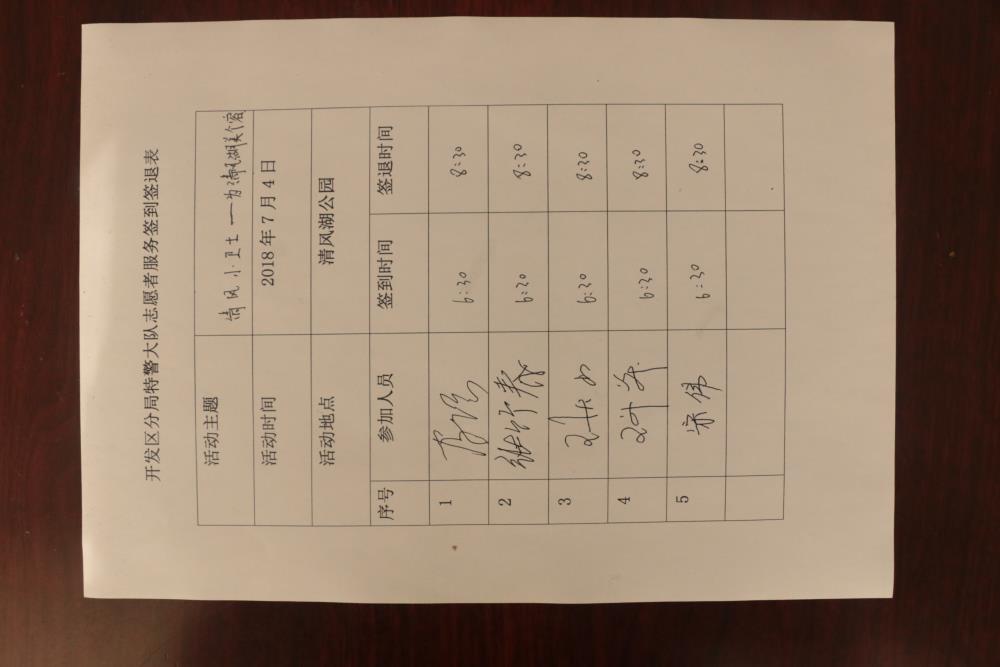 开发区分局特警大队志愿者服务签到签退表
活动主题 清风小卫士——为清风湖美容
活动时间 2018年7月4日
活动地点 清风湖公园
序号 参加人员 签到时间 签退时间
1 6:30 8:30
2 6:30 8:30
3 6:30 8:30
4 6:30 8:30
5 宋伟 6:30 8:30